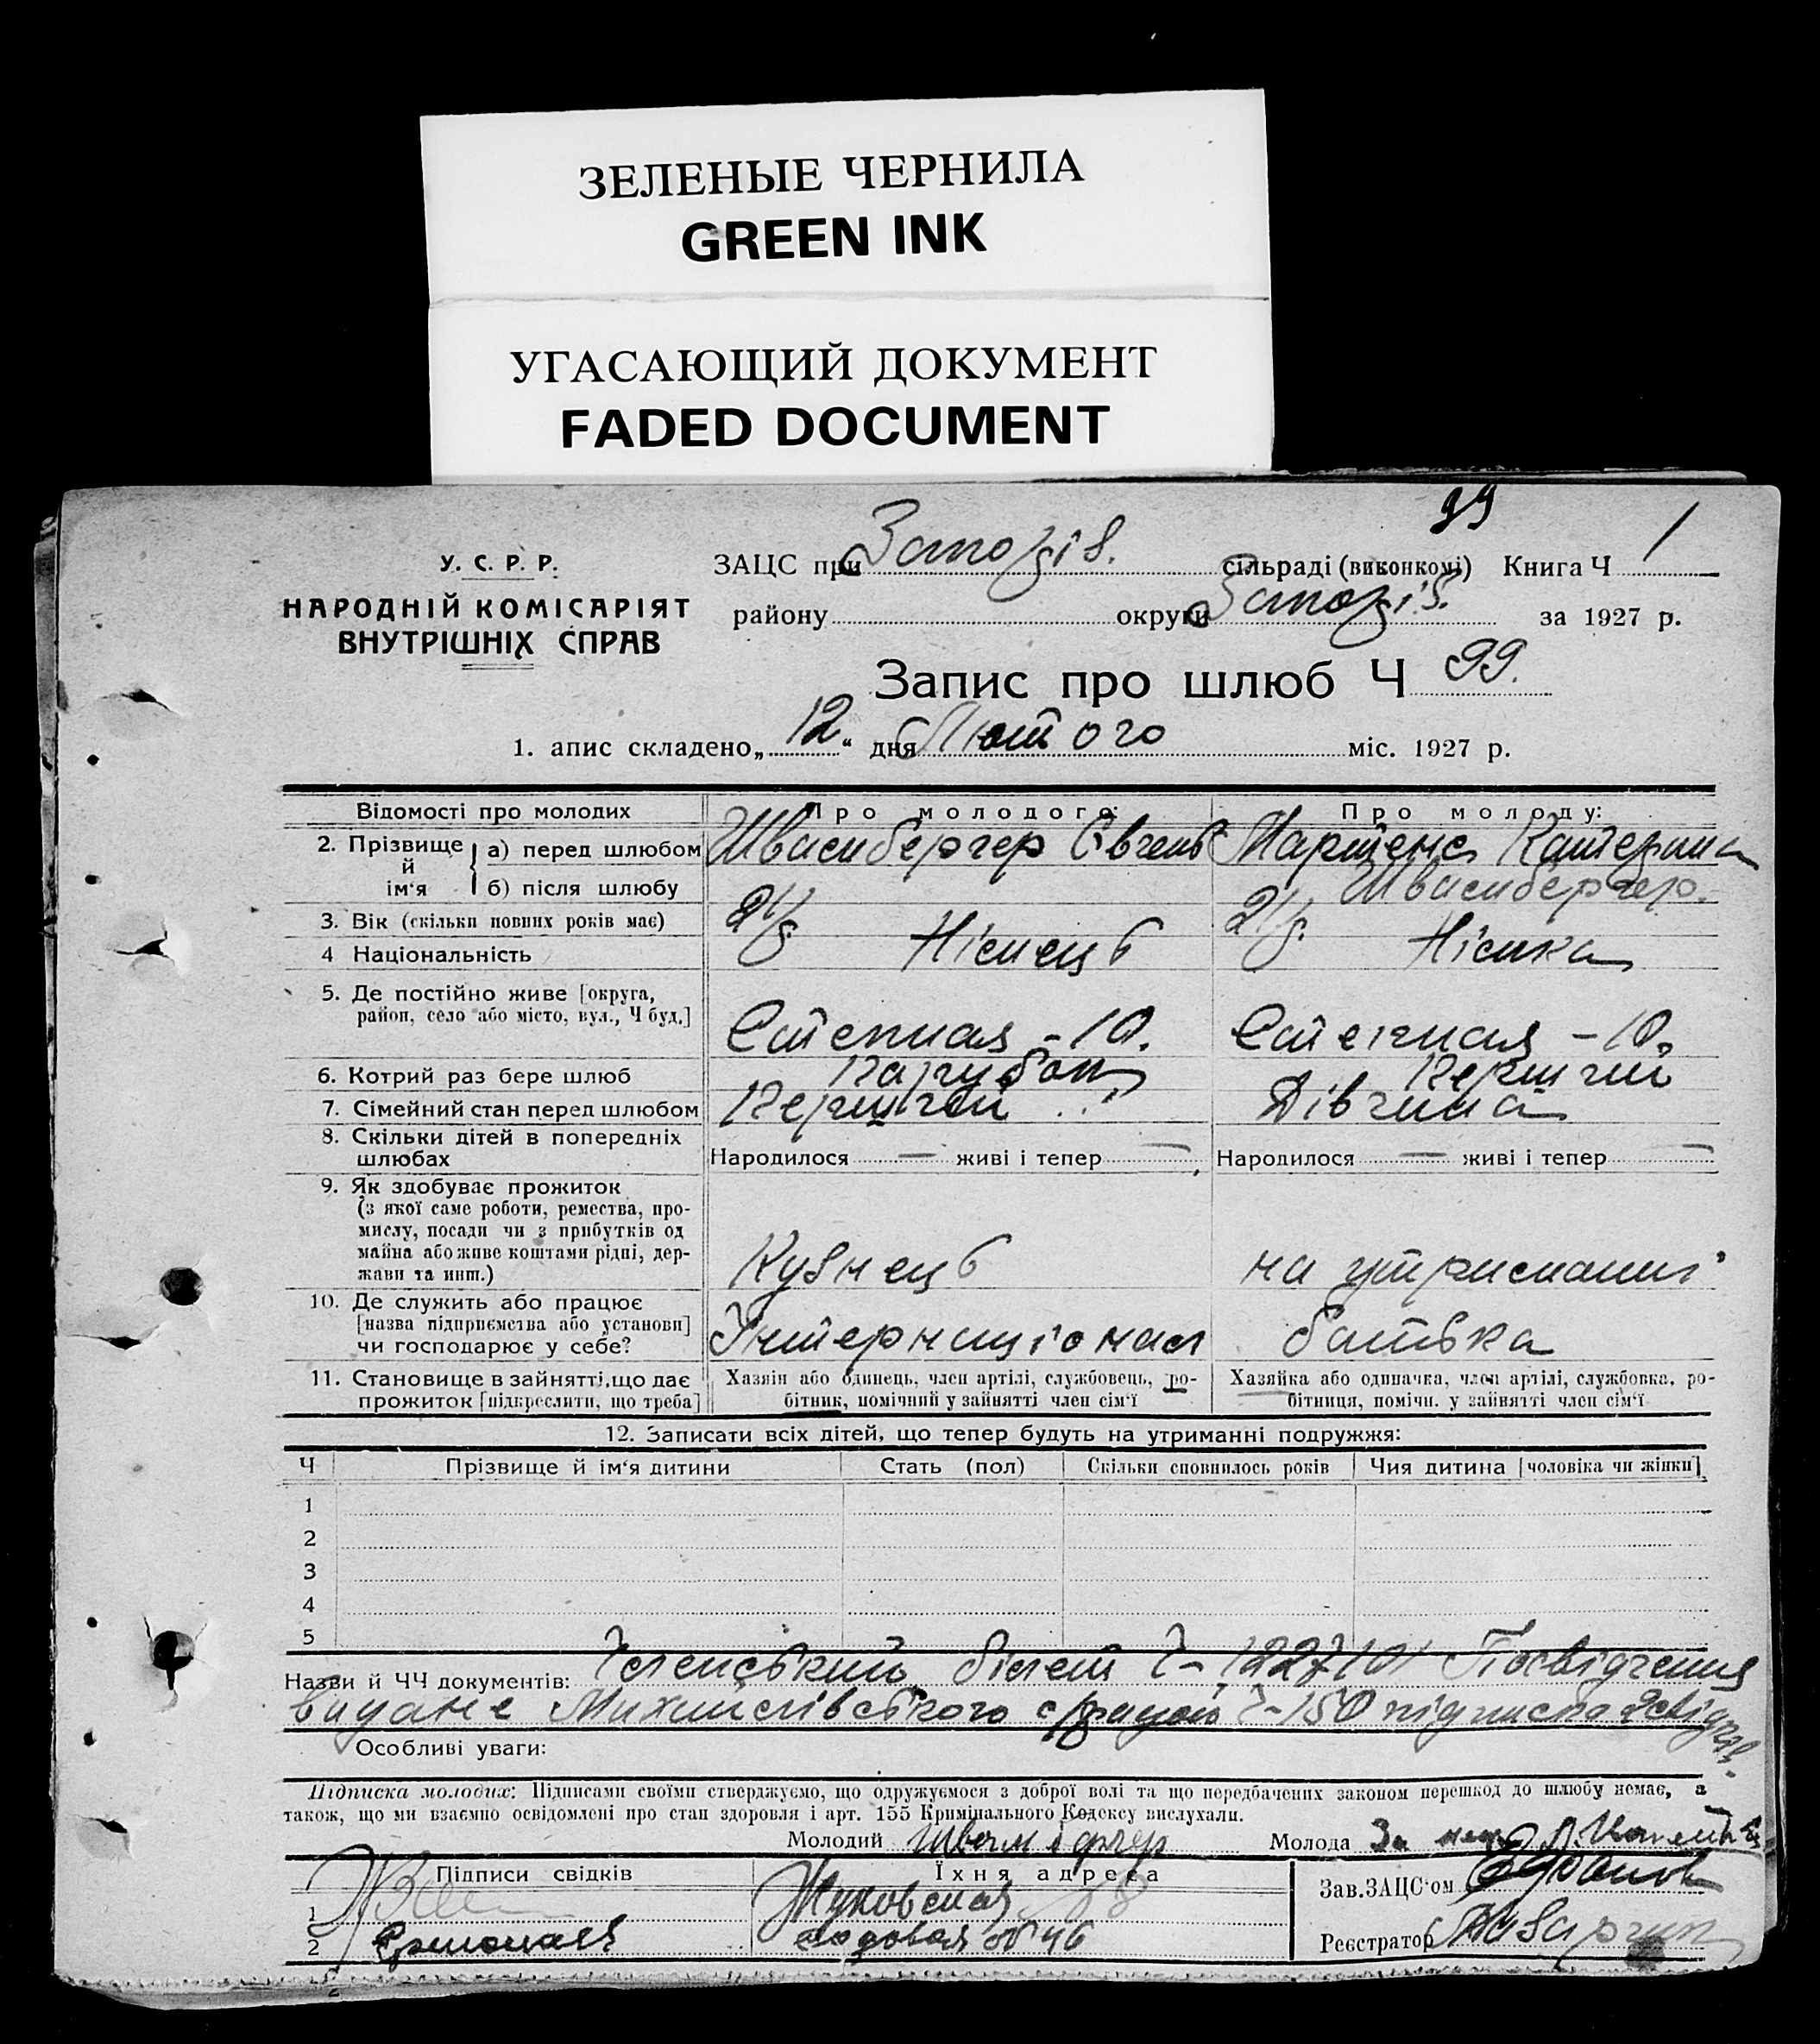 ЗЕЛЕНЫЕ ЧЕРНИЛА
GREEN INK
УГАСАЮЩИЙ ДОКУМЕНТ
FADED DOCUMENT
99
У. С. Р. Р.
НАРОДНІЙ КОМІСАРІЯТ
ВНУТРІШНІХ СПРАВ
ЗАЦС при Запоріз. сільраді (виконкомі) Книга Ч 1
району округи Запоріз. за 1927 р.
Запис про шлюб Ч 99.
1. апис складено „12“ дня Лютого міс. 1927 р.
Відомості про молодих Про молодого: Про молоду:
2. Прізвище й ім‘я
а) перед шлюбом Катерина
б) після шлюбу
3. Вік (скільки повних років має)
4 Національність Німець Німка
5. Де постійно живе [округа,
район, село або місто, вул., Ч буд.]
Степная - 10. Степная - 10.
6. Котрий раз бере шлюб Парубок Перший
7. Сімейний стан перед шлюбом Перший Дівчина
8. Скільки дітей в попередніх
шлюбах
Народилося — живі і тепер — Народилося — живі і тепер —
9. Як здобуває прожиток
(з якої саме роботи, ремества, про-
мислу, посади чи з прибутків од
майна або живе коштами рідні, дер-
жави та инш.)
Кузнець на утриманні
10. Де служить або працює
[назва підприємства або установи]
чи господарює у себе?
Інтернаціонал батька
11. Становище в зайнятті, що дає
прожиток [підкреслити, що треба]
Хазяїн або одинець, член артілі, службовець, ро-
бітник, помічний у зайнятті член сім‘ї
Хазяйка або одиначка, член артілі, службовка, ро-
бітниця, помічн. у зайнятті член сім‘ї
12. Записати всіх дітей, що тепер будуть на утриманні подружжя:
Ч Прізвище й ім‘я дитини Стать (пол) Скільки сповнилось років Чия дитина [чоловіка чи жінки]
1
2
3
4
5
Назви й ЧЧ документів: Членський білет Ч- Посвідчення
видане Михайлівського Ч-150 підписка
Особливі уваги:
Підписка молодих: Підписами своїми стверджуємо, що одружуємося з доброї волі та що передбачених законом перешкод до шлюбу немає, а
також, що ми взаємно освідомлені про стан здоровля і арт. 155 Кримінального Кодексу вислухали.
Молодий Молода За
Підписи свідків Їхня адреса
Зав. ЗАЦС‘ом
1 Жуковская
2
Реєстратор